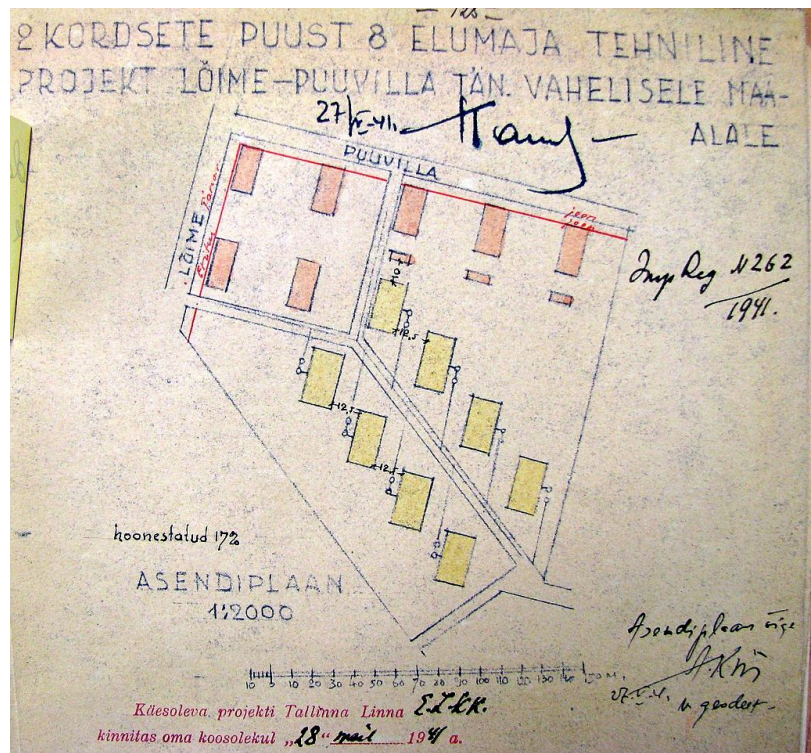 2 KORDSETE PUUST 8 ELUMAJA TEHNILINE
PROJEKT LÕIME-PUUVILLA TÄN. VAHELISELE MAA-
ALALE
27/V-41.
PUUVILLA
LÕIME
joon
joon
Imp Reg N 262
1941.
10,5
12,5
12,5
12,5
hoonestatud 17%
ASENDIPLAAN
1:2000
10 5 10 20 30 40 50 60 70 80 90 100 110 120 130 140 150 M.
Asendiplaan õige
27-V-41.
Käesoleva projekti Tallinna Linna
kinnitas oma koosolekul „28“ mail 1941 a.